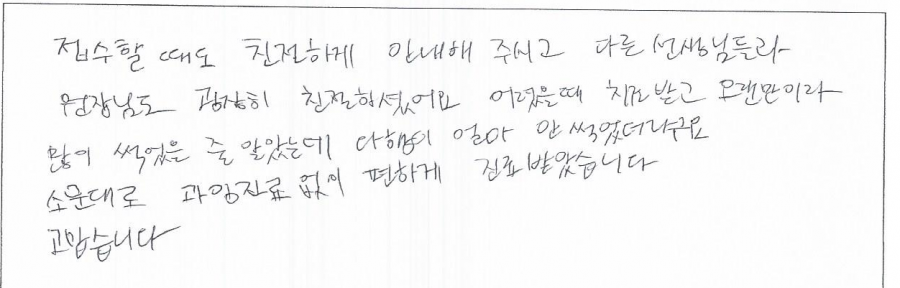 접수할 때도 친절하게 안내해 주시고 다른 선생님들과
원장님도 굉장히 친절하셨어요 어렸을때 치료받고 오랜만이라
많이 썩었을 줄 알았는데 다행이 얼마 안 썩었더라구요
소문대로 과잉진료 없이 편하게 진료받았습니다
고맙습니다